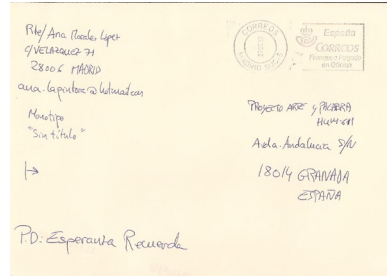 Rte/ Ana Morales López
C/ VELAZQUEZ 71
28006 MADRID
Monotipo
"Sin título"
CORREOS
España
CORREOS
Franqueo Pagado
en Oficina
PROYECTO ARTE y PALABRA
Avda. Andalucía S/N
18014 GRANADA
ESPAÑA
P.D: Esperanza Recuerda